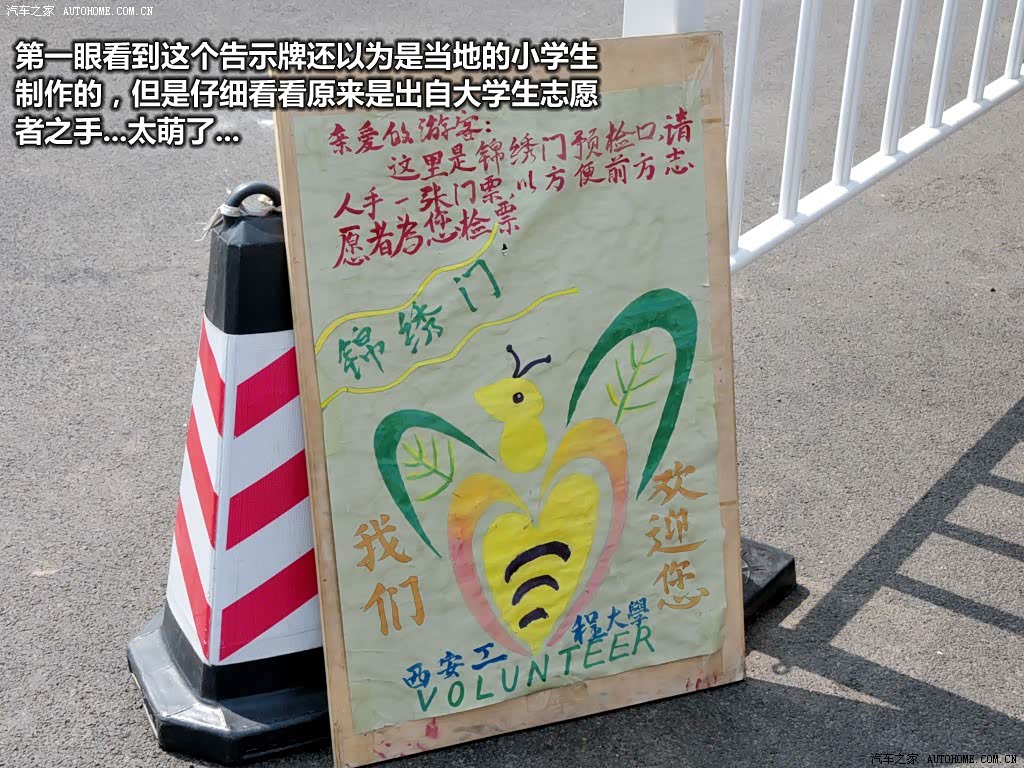 汽车之家 AUTOHOME.COM.CN
第一眼看到这个告示牌还以为是当地的小学生
制作的，但是仔细看看原来是出自大学生志愿
者之手...太萌了...
亲爱的游客：
这里是锦绣门预检口,请
人手一张门票,以方便前方志
愿者為您检票
锦绣门
我们
欢迎您
西安工程大學
VOLUNTEER
汽车之家 AUTOHOME.COM.CN